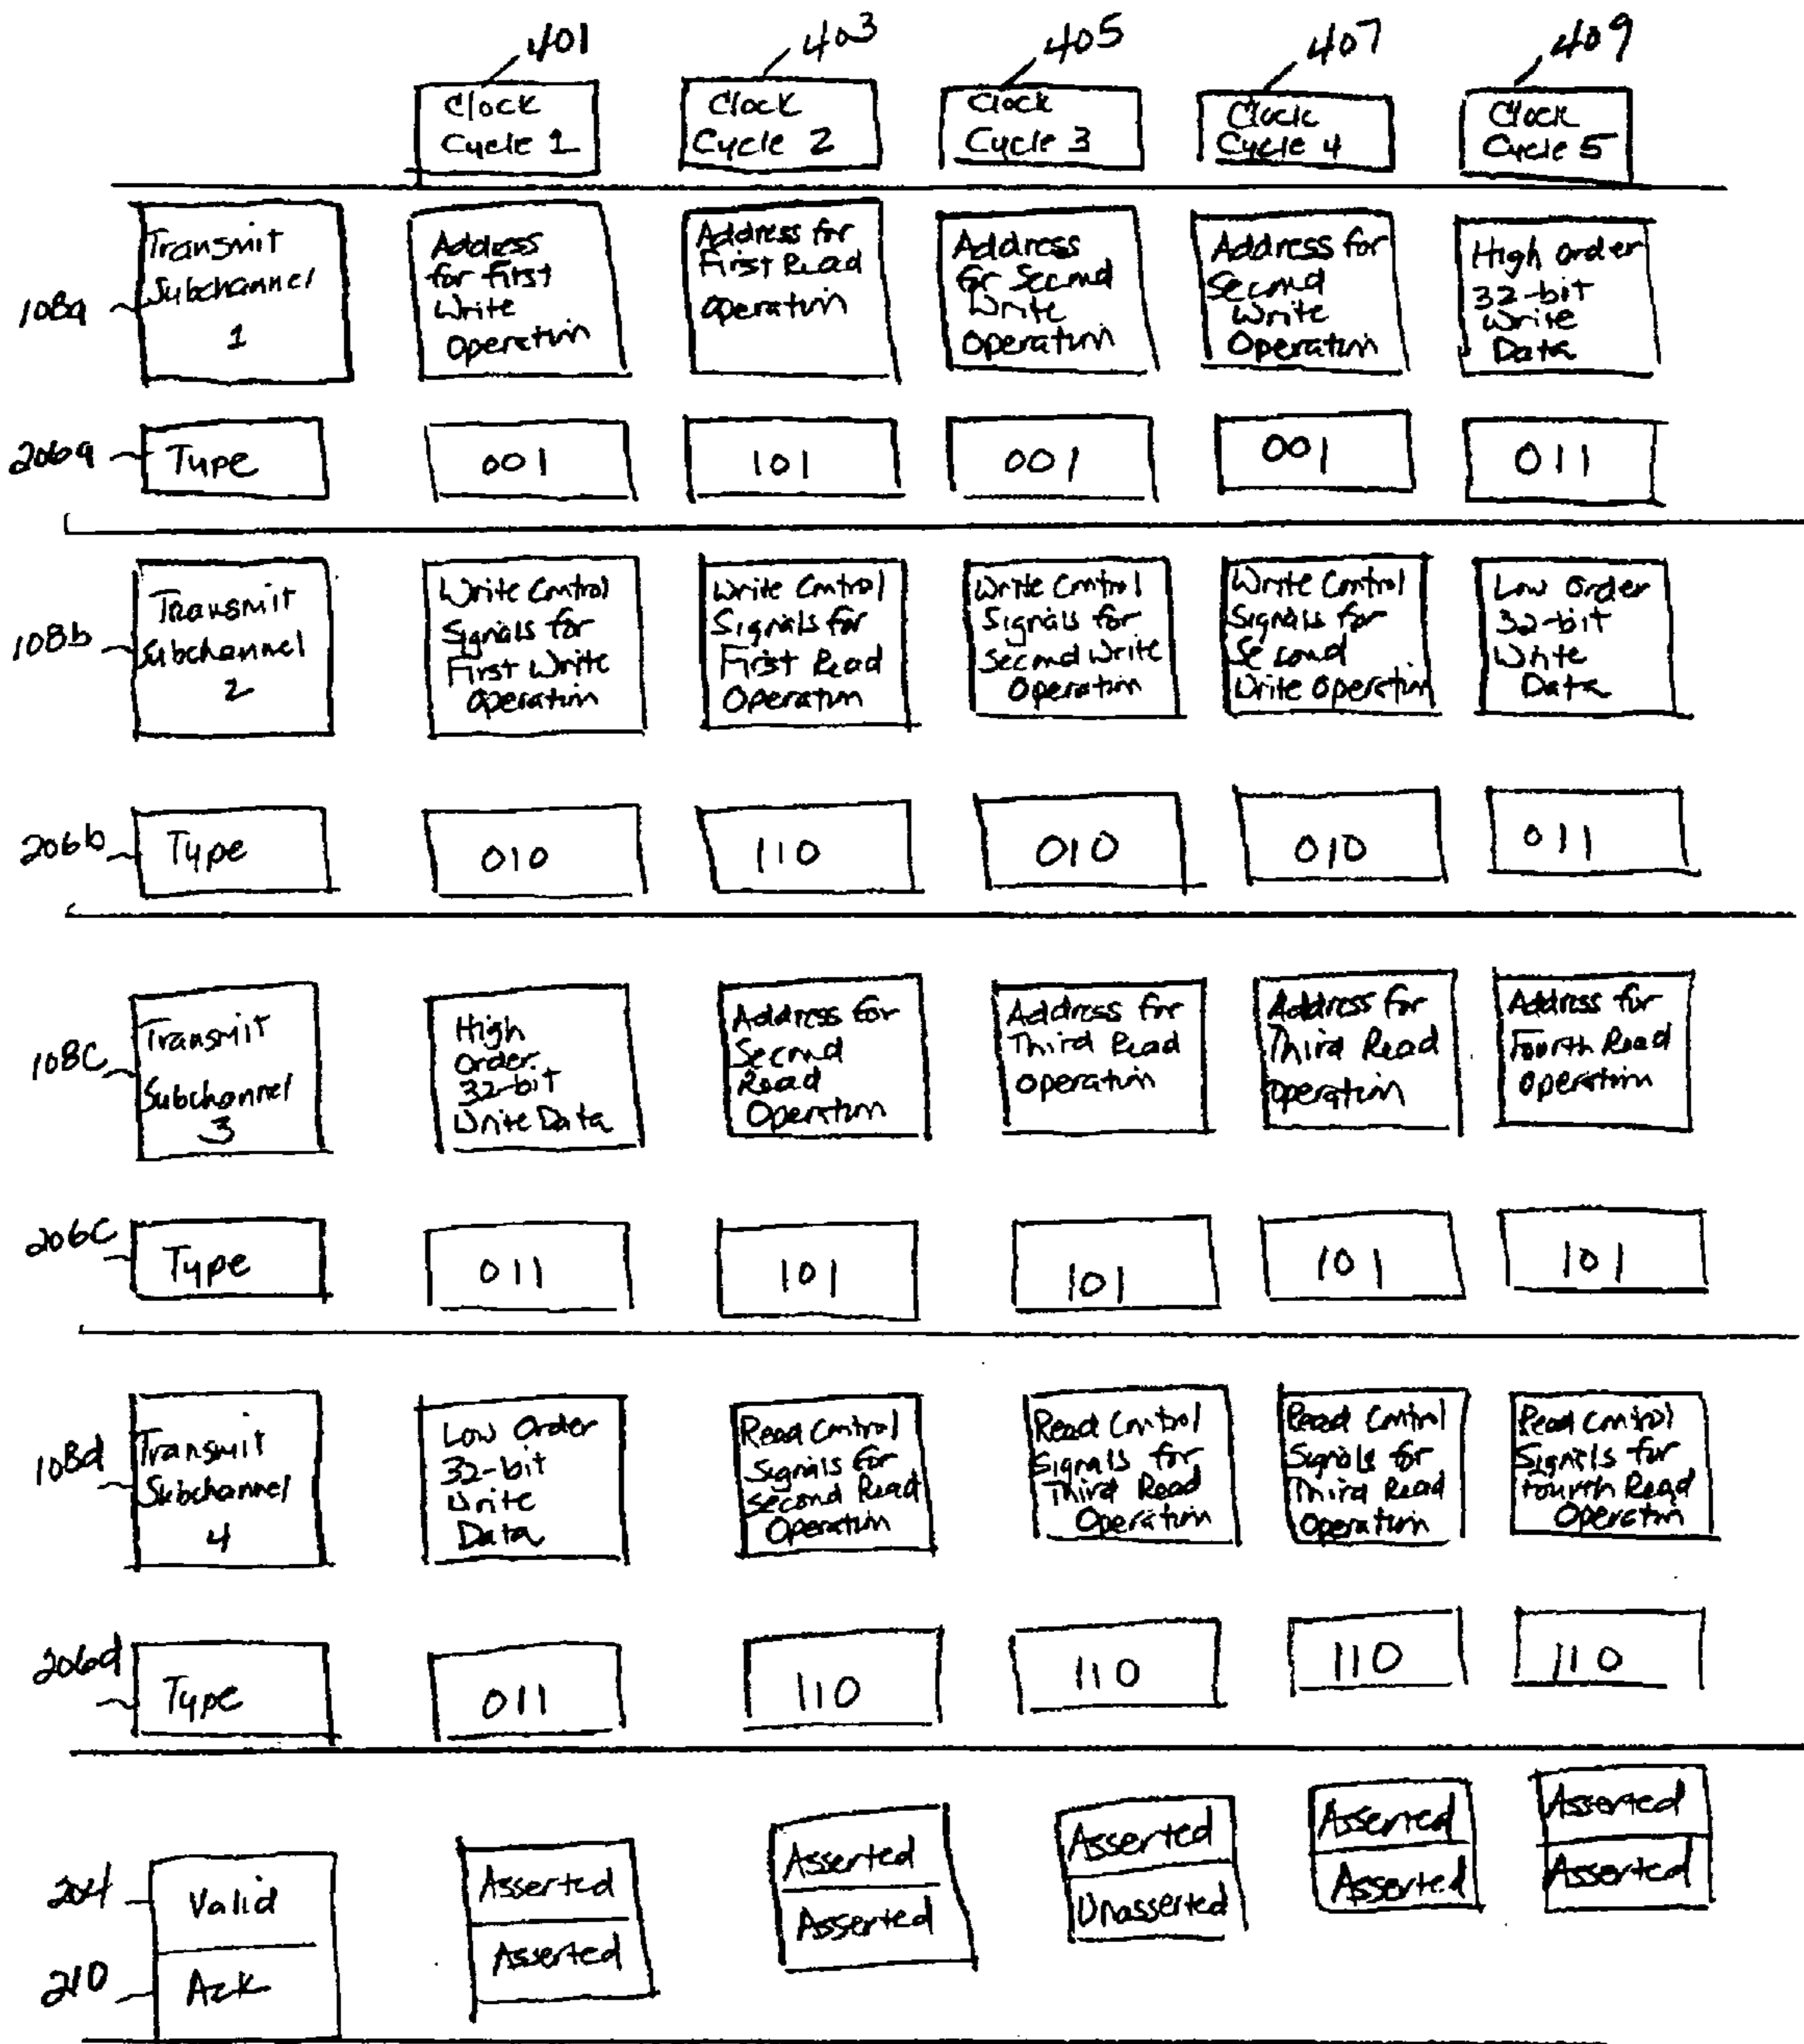 401 403 405 407 409
Clock Clock Clock Clock Clock
Cycle 1 Cycle 2 Cycle 3 Cycle 4 Cycle 5
108a
Transmit
Subchannel
1
Address
for First
Write
Operation
Address for
First Read
Operation
Address
for Second
Write
Operation
Address for
Second
Write
Operation
High Order
32-bit
Write
Data
206a Type 001 101 001 001 011
108b
Transmit
Subchannel
2
Write Control
Signals for
First Write
Operation
Write Control
Signals for
First Read
Operation
Write Control
Signals for
Second Write
Operation
Write Control
Signals for
Second
Write Operation
Low Order
32-bit
Write
Data
206b Type 010 110 010 010 011
108c
Transmit
Subchannel
3
High
Order
32-bit
Write Data
Address for
Second
Read
Operation
Address for
Third Read
Operation
Address for
Third Read
Operation
Address for
Fourth Read
Operation
206c Type 011 101 101 101 101
108d
Transmit
Subchannel
4
Low Order
32-bit
Write
Data
Read Control
Signals for
Second Read
Operation
Read Control
Signals for
Third Read
Operation
Read Control
Signals for
Third Read
Operation
Read Control
Signals for
Fourth Read
Operation
206d Type 011 110 110 110 110
204 Valid Asserted Asserted Asserted Asserted Asserted
210 Ack Asserted Asserted Unasserted Asserted Asserted